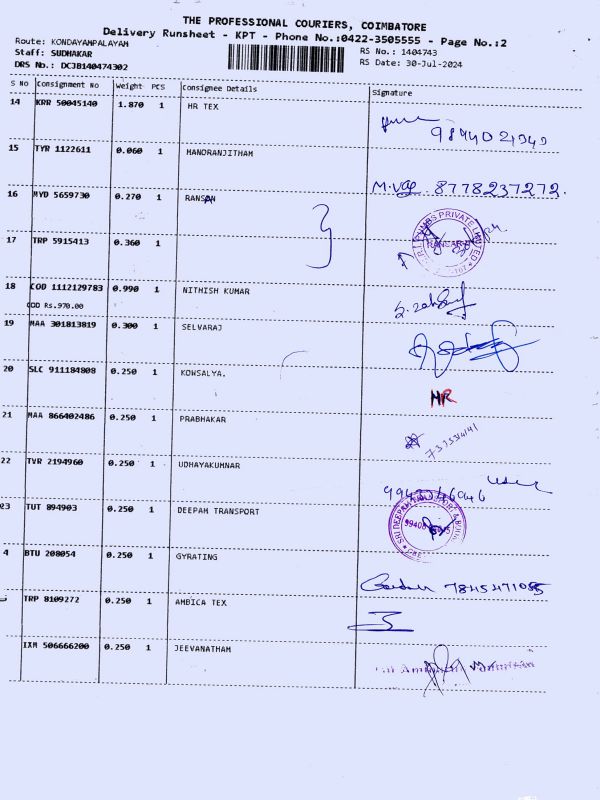 THE PROFESSIONAL COURIERS, COIMBATORE
Delivery Runsheet - KPT - Phone No.:0422-3505555 - Page No.:2
Route: KONDAYAMPALAYAM
Staff: SUDHAKAR RS No.: 1404743
DRS No.: DCJB140474302 RS Date: 30-Jul-2024
S NO Consignment No Weight PCS Consignee Details Signature
14 KRR 50045140 1.870 1 HR TEX
15 TYR 1122611 0.060 1 MANORANJITHAM
8778237272.
16 MYD 5659730 0.270 1 RANSAN
17 TRP 5915413 0.360 1
18 COD 1112129783 0.990 1 NITHISH KUMAR
COD Rs.970.00
19 MAA 301813819 0.300 1 SELVARAJ
20 SLC 911184808 0.250 1 KOWSALYA.
MR
21 MAA 866402486 0.250 1 PRABHAKAR
22 TVR 2194960 0.250 1 UDHAYAKUMAR
23 TUT 894903 0.250 1 DEEPAM TRANSPORT
4 BTU 208054 0.250 1 GYRATING
TRP 8109272 0.250 1 AMBICA TEX
IXM 506666200 0.250 1 JEEVANATHAM